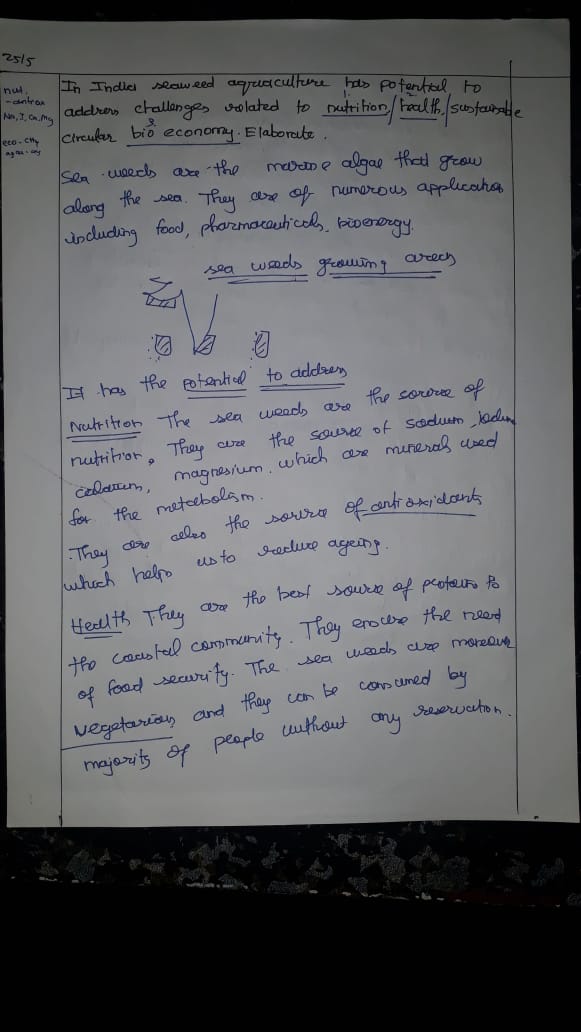 25/5
nut.
- antiox
Na, I, Ca, Mg
eco - CH4
In India seaweed aquaculture has potential to
address challenges related to nutrition / health / sustainable
1. 2.
3
circular bio economy. Elaborate.
Sea weeds are the marine algae that grow
along the sea. They are of numerous application
including food, pharmaceuticals, bioenergy.
sea weeds growing areas
It has the potential to address
Nutrition The sea weeds are the source of
nutrition. They are the source of sodium, Iodine
calcium, magnesium. which are minerals used
for the metabolism.
. They are also the source of anti oxidants
which helps us to reduce ageing.
Health They are the best source of proteins to
the coastal community. They ensure the need
of food security. The sea weeds are moreover
vegetarian and they can be consumed by
majority of people without any reservation.